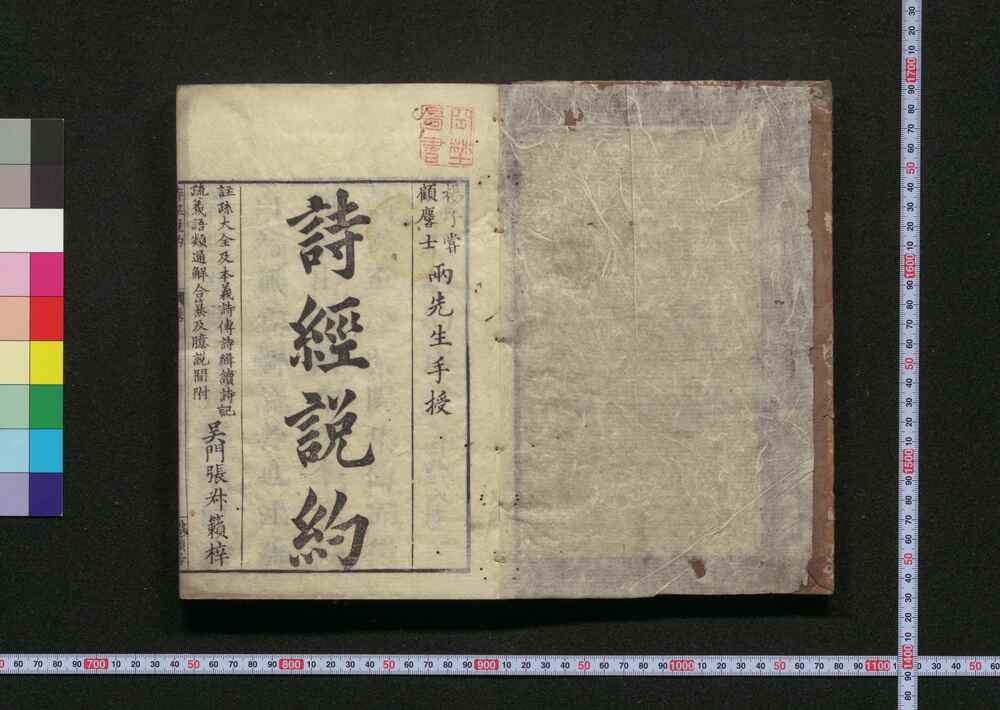 楊子嘗
顧麐士
兩先生手授
詩經説約
註疏大全及本義詩傳詩緝讀詩記
疏義語類通解合纂及臆説間附
吴門張叔籟梓
圖書